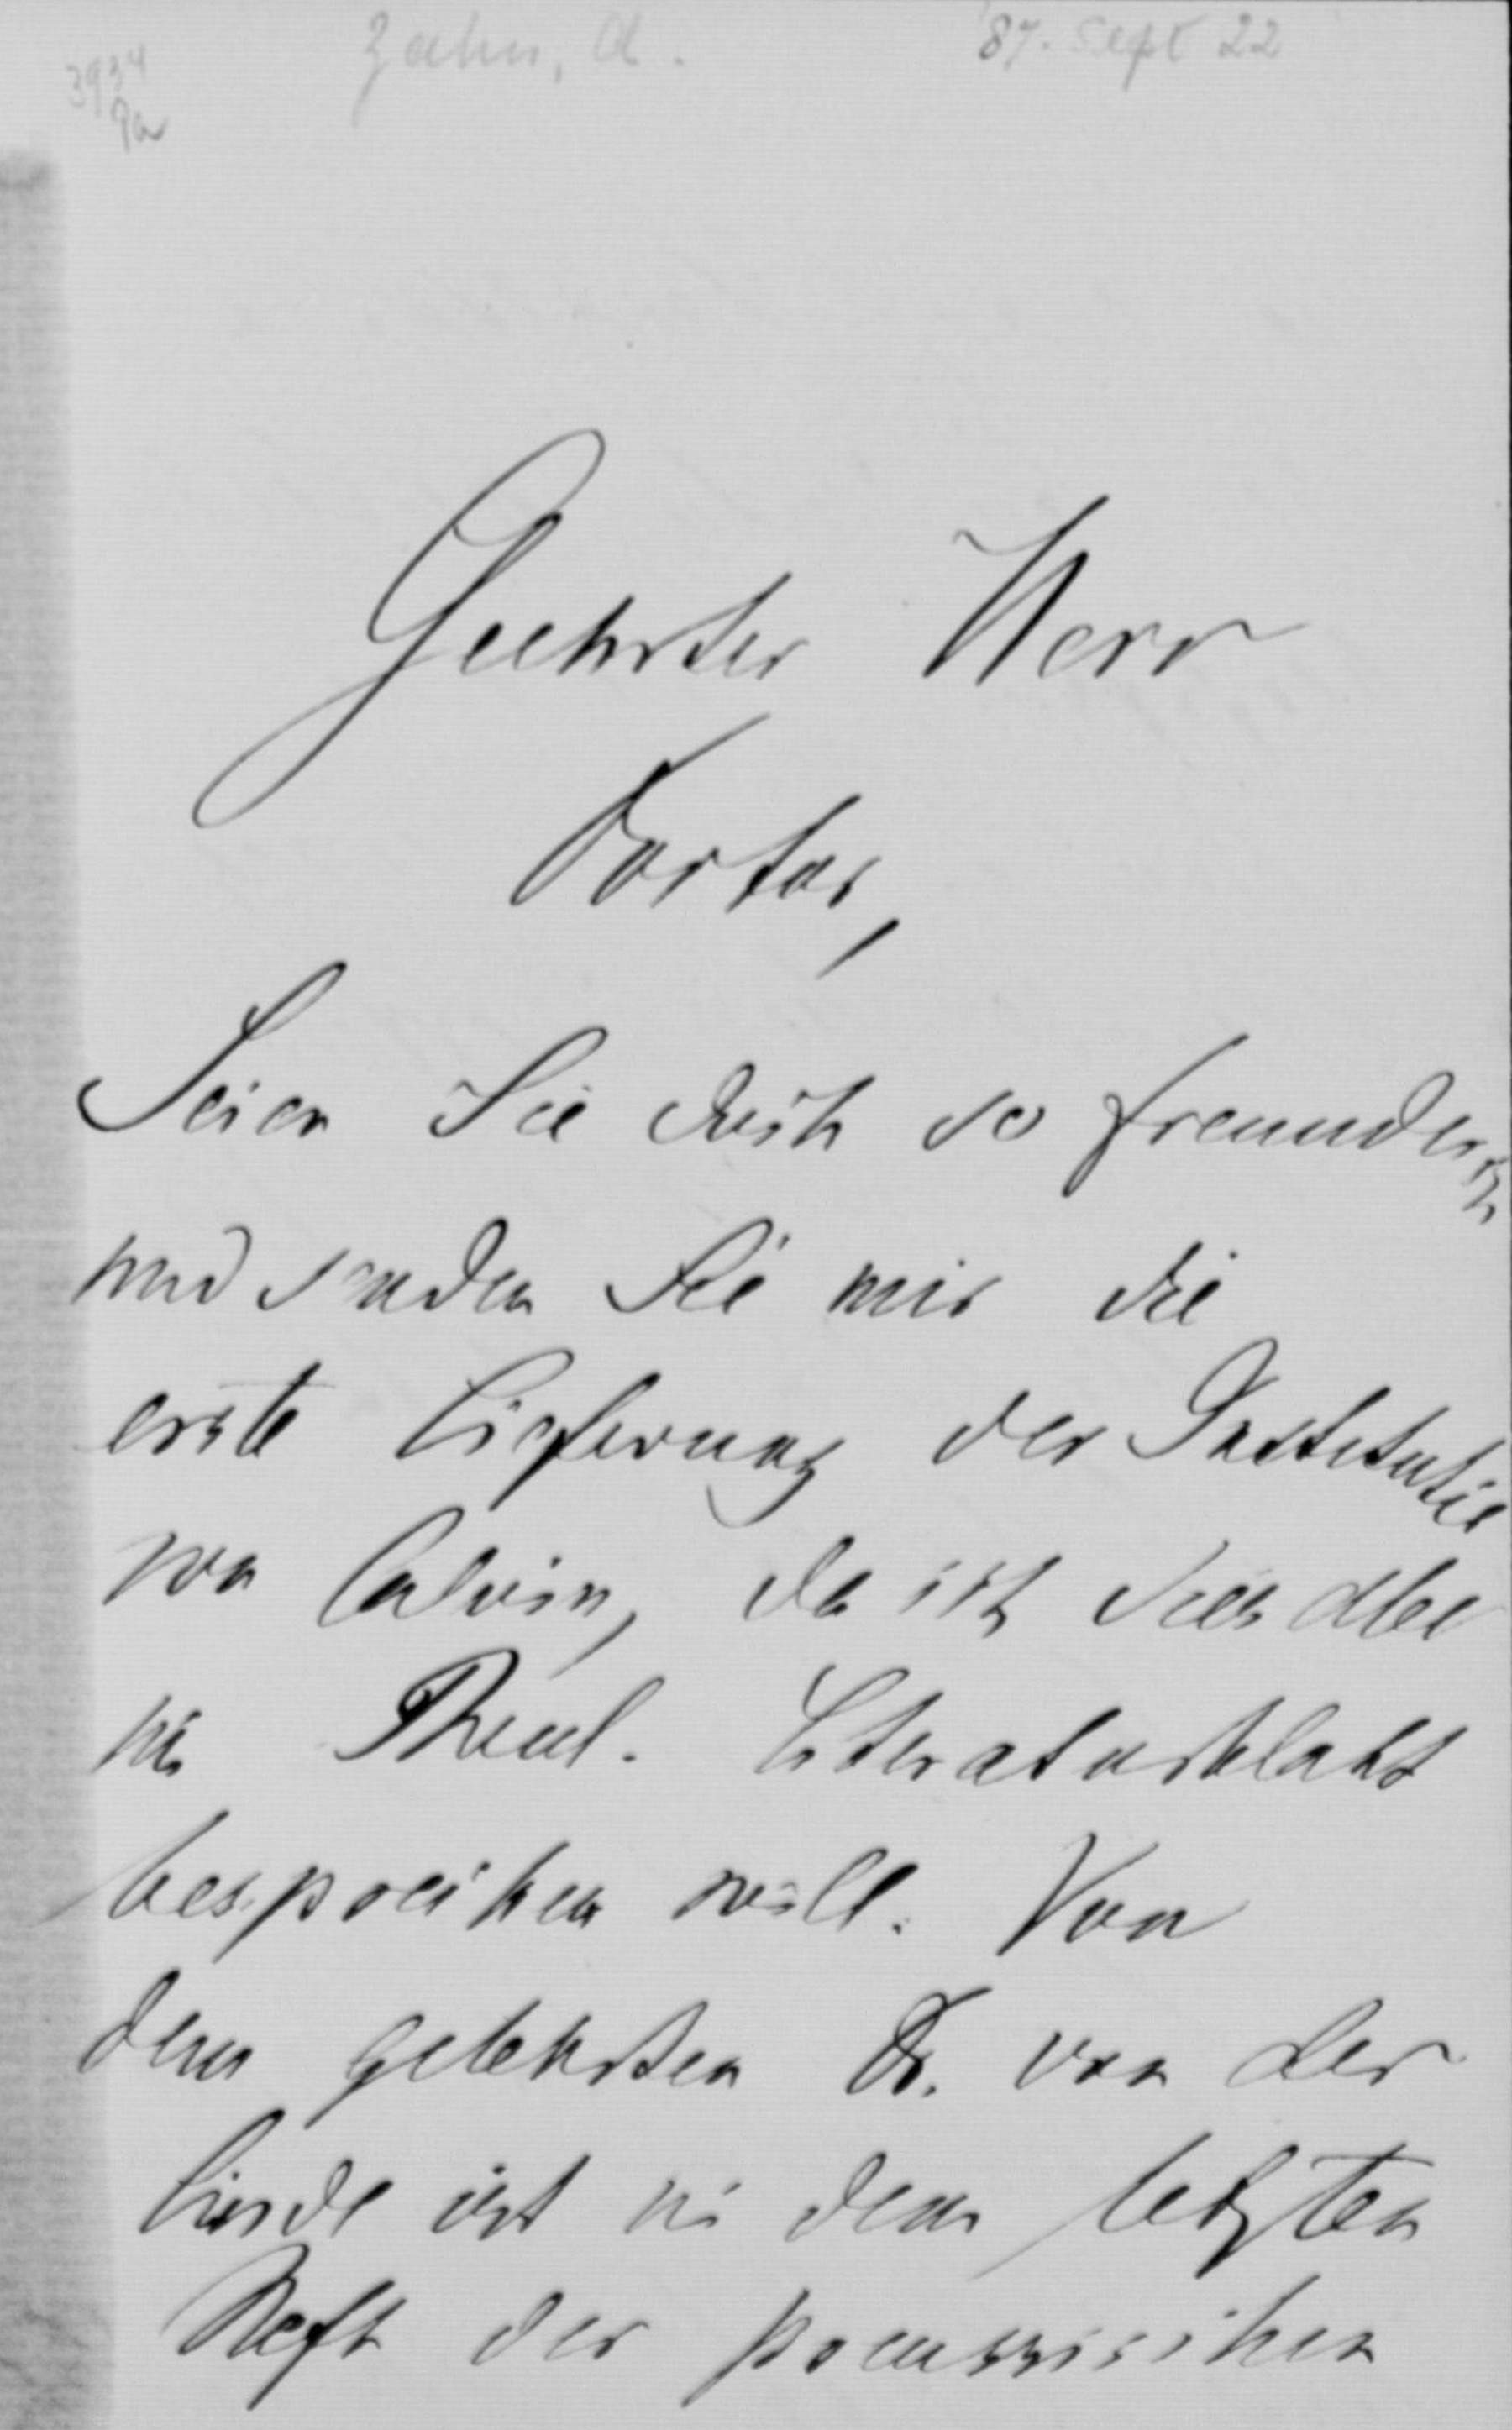 Zahn, A.
87. Sept 22
3934
Pa
Geehrter Herr
Doctor,
Seien Sie doch so freundlich
und senden Sie mir die
erste Lieferung der Institutio
von Calvin, da ich dieselbe
im Theol. Literaturblatt
besprechen will. Von
dem gelehrten Dr. von der
Linde ist in dem letzten
Heft der preussischen